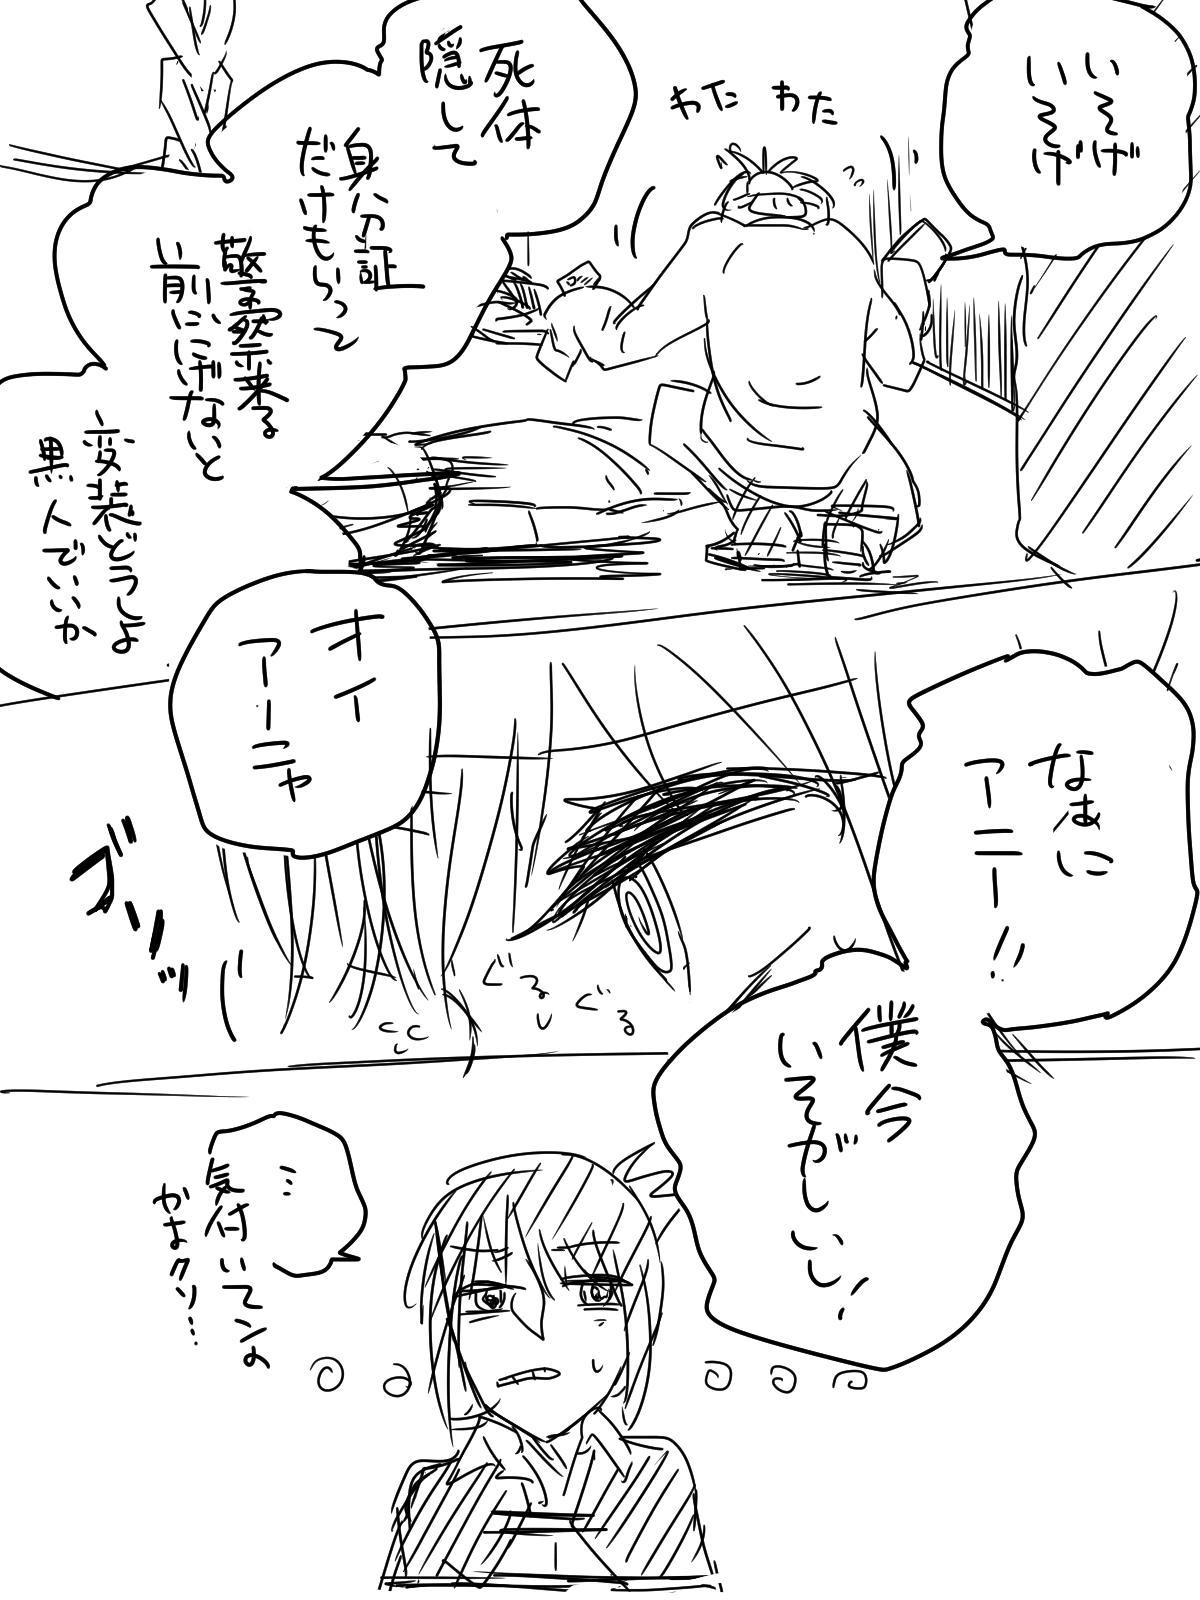 いそげ
いそげ
わた わた
死体
隠して
身分証
だけもらって
警察来る
前ににげないと
変装どうしよ
黒人でいいか
オイ
アーニャ
なぁに
アーニー!!
グンッ
ぐる
ぐる
僕今
いそがしい!
…
気付いてンの
かよクソ…